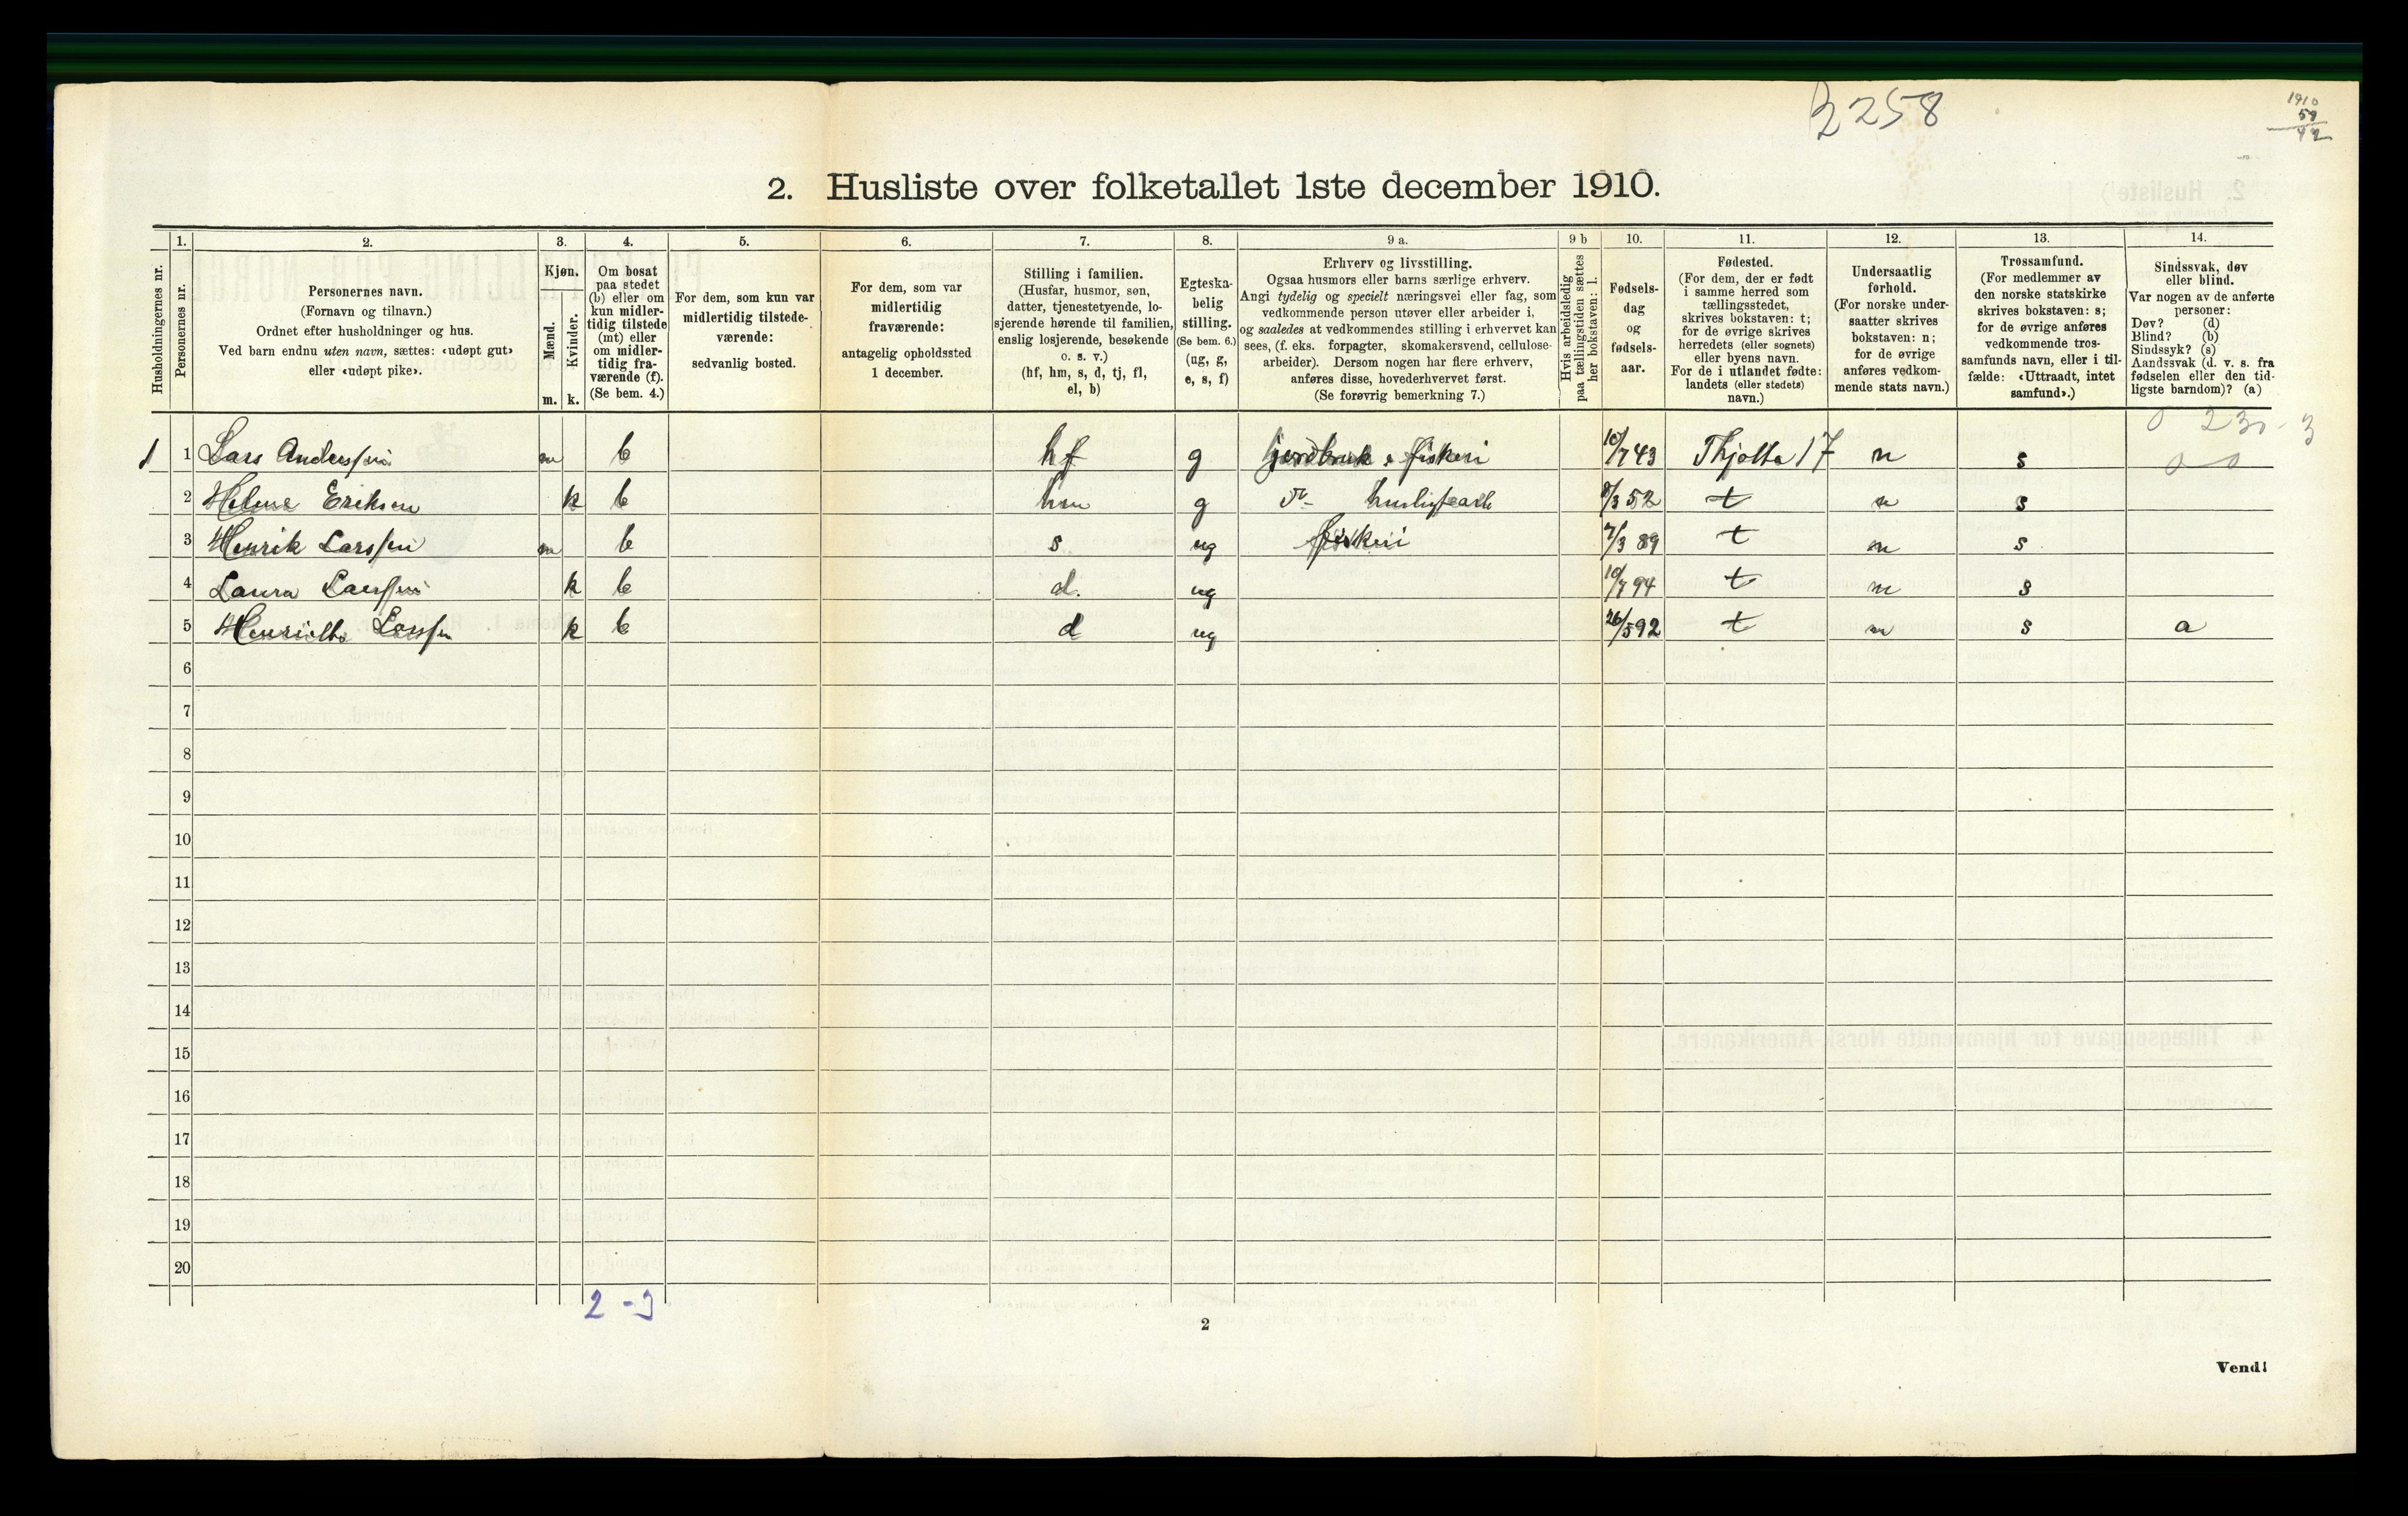 3258
1910
2. Husliste over folketallet 1ste december 1910.
Husholdningernes nr.
1. Personernes nr.
2. Personernes navn.
(Fornavn og tilnavn.)
Ordnet efter husholdninger og hus.
Ved barn endnu uten navn, sættes: «udøpt gut»
eller «udøpt pike».
3. Kjøn.
Mænd. m.
Kvinder. k.
4. Om bosat
paa stedet
(b) eller om
kun midler-
tidig tilstede
(mt) eller
om midler-
tidig fra-
værende (f).
(Se bem. 4.)
5. For dem, som kun var
midlertidig tilstede-
værende:
sedvanlig bosted.
6. For dem, som var
midlertidig
fraværende:
antagelig opholdssted
1 december.
7. Stilling i familien.
(Husfar, husmor, søn,
datter, tjenestetyende, lo-
sjerende hørende til familien,
enslig losjerende, besøkende
o. s. v.)
(hf, hm, s, d, tj, fl,
el, b)
8. Egteska-
belig
stilling.
(Se bem. 6.)
(ug, g,
e, s, f)
9 a. Erhverv og livsstilling.
Ogsaa husmors eller barns særlige erhverv.
Angi tydelig og specielt næringsvei eller fag, som
vedkommende person utøver eller arbeider i,
og saaledes at vedkommendes stilling i erhvervet kan
sees, (f. eks. forpagter, skomakersvend, cellulose-
arbeider). Dersom nogen har flere erhverv,
anføres disse, hovederhvervet først.
(Se forøvrig bemerkning 7.)
9 b Hvis arbeidsledig
paa tællingstiden sættes
her bokstaven: l.
10. Fødsels-
dag
og
fødsels-
aar.
11. Fødested.
(For dem, der er født
i samme herred som
tællingsstedet,
skrives bokstaven: t;
for de øvrige skrives
herredets (eller sognets)
eller byens navn.
For de i utlandet fødte:
landets (eller stedets)
navn.)
12. Undersaatlig
forhold.
(For norske under-
saatter skrives
bokstaven: n;
for de øvrige
anføres vedkom-
mende stats navn.)
13. Trossamfund.
(For medlemmer av
den norske statskirke
skrives bokstaven: s;
for de øvrige anføres
vedkommende tros-
samfunds navn, eller i til-
fælde: «Uttraadt, intet
samfund».)
14. Sindssvak, døv
eller blind.
Var nogen av de anførte
personer:
Døv? (d)
Blind? (b)
Sindssyk? (s)
Aandssvak (d. v. s. fra
fødselen eller den tid-
ligste barndom)? (a)
0 230-3
1 1 Lars Anderssen m b hf g jordbruk & fiskeri 10/7 43 Thjøtta 17 n s 0 0
2 Helene Eriksen k b hm g husligt arb 8/3 52 t n s
3 Henrik Larssen m b s ug fiskeri 7/3 89 t n s
4 Laura Larssen k b d. ug 10/7 94 t n s
5 Henriette Larssen k b d ug 26/5 92 t n s a
6
7
8
9
10
11
12
13
14
15
16
17
18
19
20
2 - 3
2
Vend!